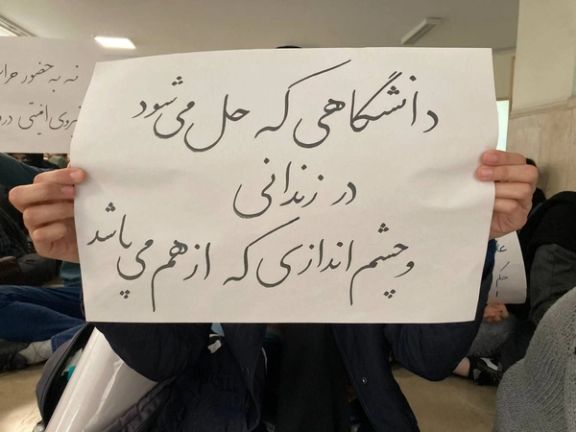 دانشگاهی که حل می‌شود
در زندانی
و چشم‌اندازی که از هم می‌پاشد
نه به حضور حرا
نیروی امنیتی در